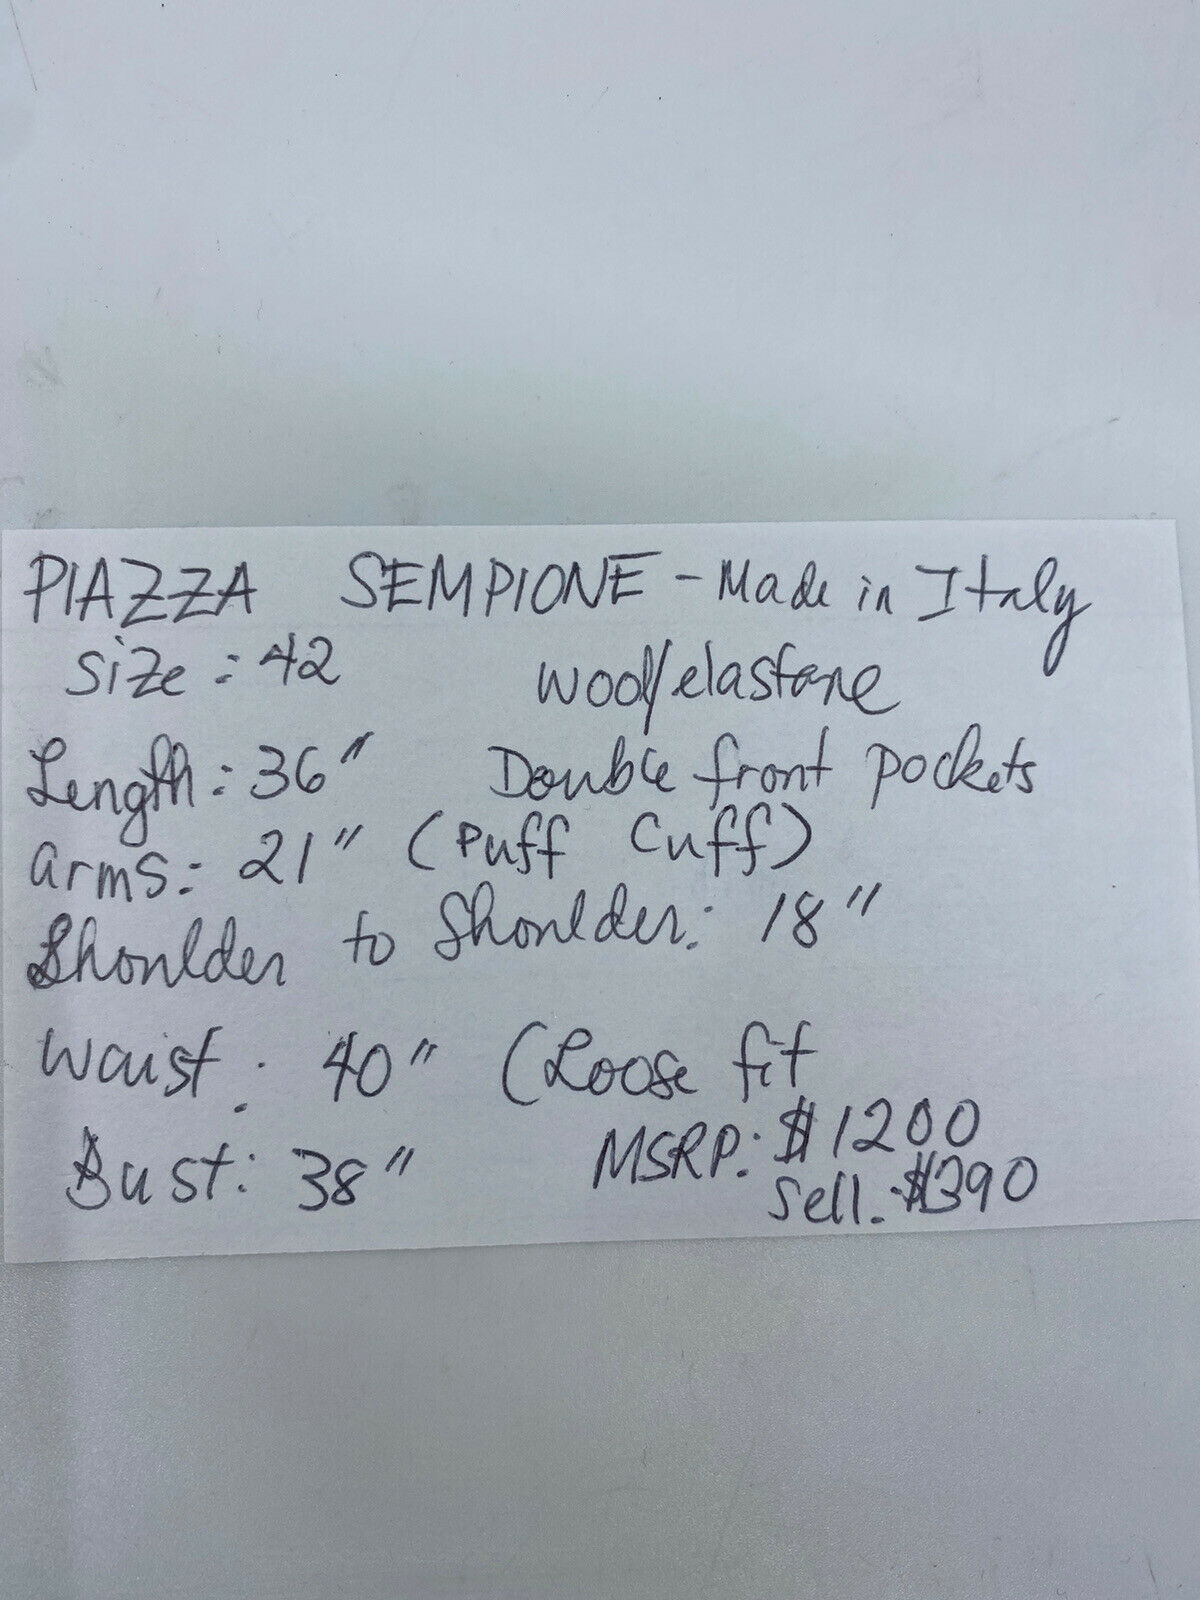 PIAZZA SEMPIONE - Made in Italy
Size: 42 wool/elastane
Length: 36" Double front pockets
arms: 21" (Puff Cuff)
Shoulder to Shoulder: 18"
Waist: 40" (Loose fit
Bust: 38" MSRP: $1200
Sell: $390